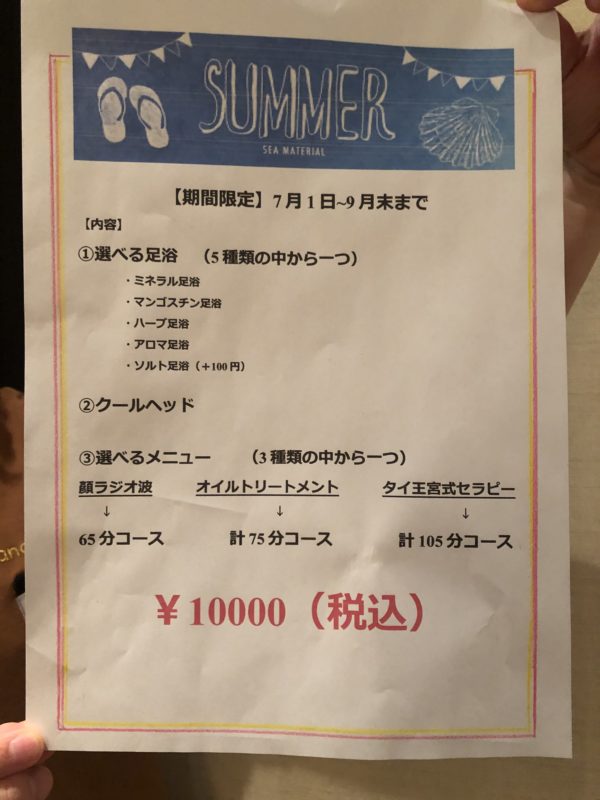 SUMMER
SEA MATERIAL
【期間限定】7月1日~9月末まで
【内容】
①選べる足浴　（5種類の中から一つ）
・ミネラル足浴
・マンゴスチン足浴
・ハーブ足浴
・アロマ足浴
・ソルト足浴（＋100円）
②クールヘッド
③選べるメニュー　（3種類の中から一つ）
顔ラジオ波　オイルトリートメント　タイ王宮式セラピー
↓　↓　↓
65分コース　計75分コース　計105分コース
￥10000（税込）